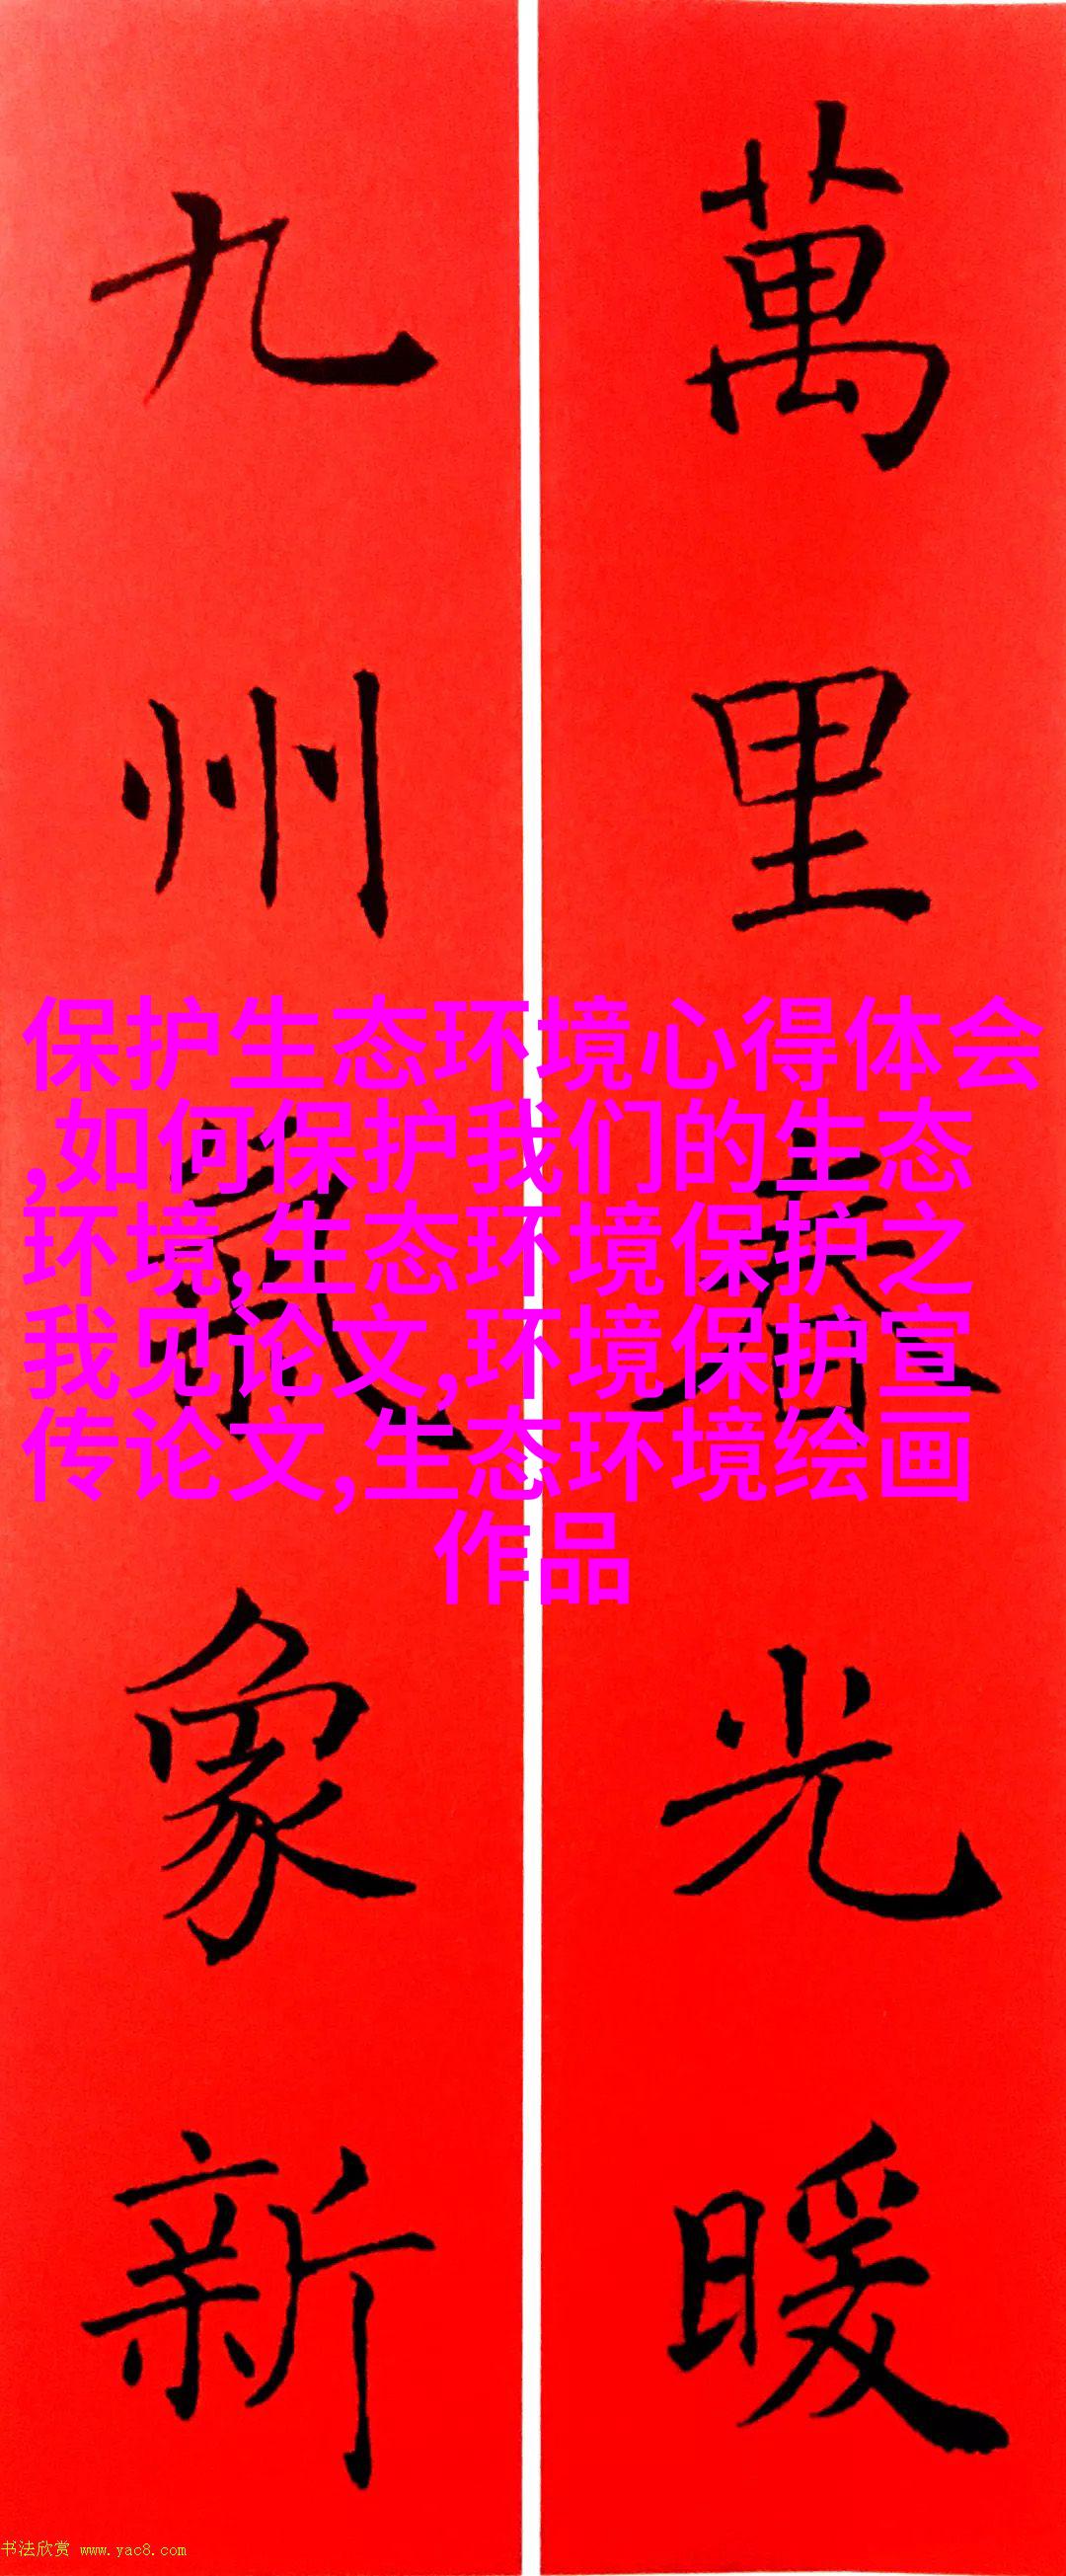 萬里春光暖
九州氣象新
保护生态环境心得体会
,如何保护我们的生态
环境,生态环境保护之
我见论文,环境保护宣
传论文,生态环境绘画
作品
书法欣赏 www.yac8.com